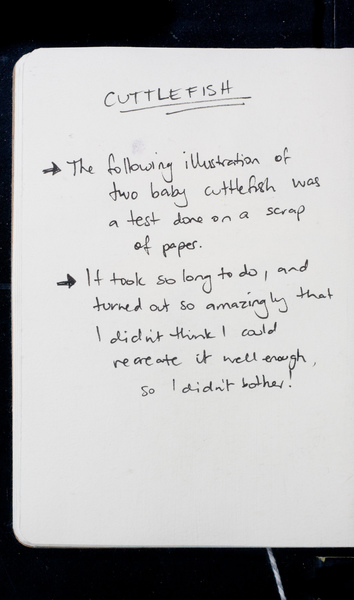 CUTTLEFISH
→ The following illustration of
two baby cuttlefish was
a test done on a scrap
of paper.
→ It took so long to do, and
turned out so amazingly that
I didn't think I could
recreate it well enough,
so I didn't bother!